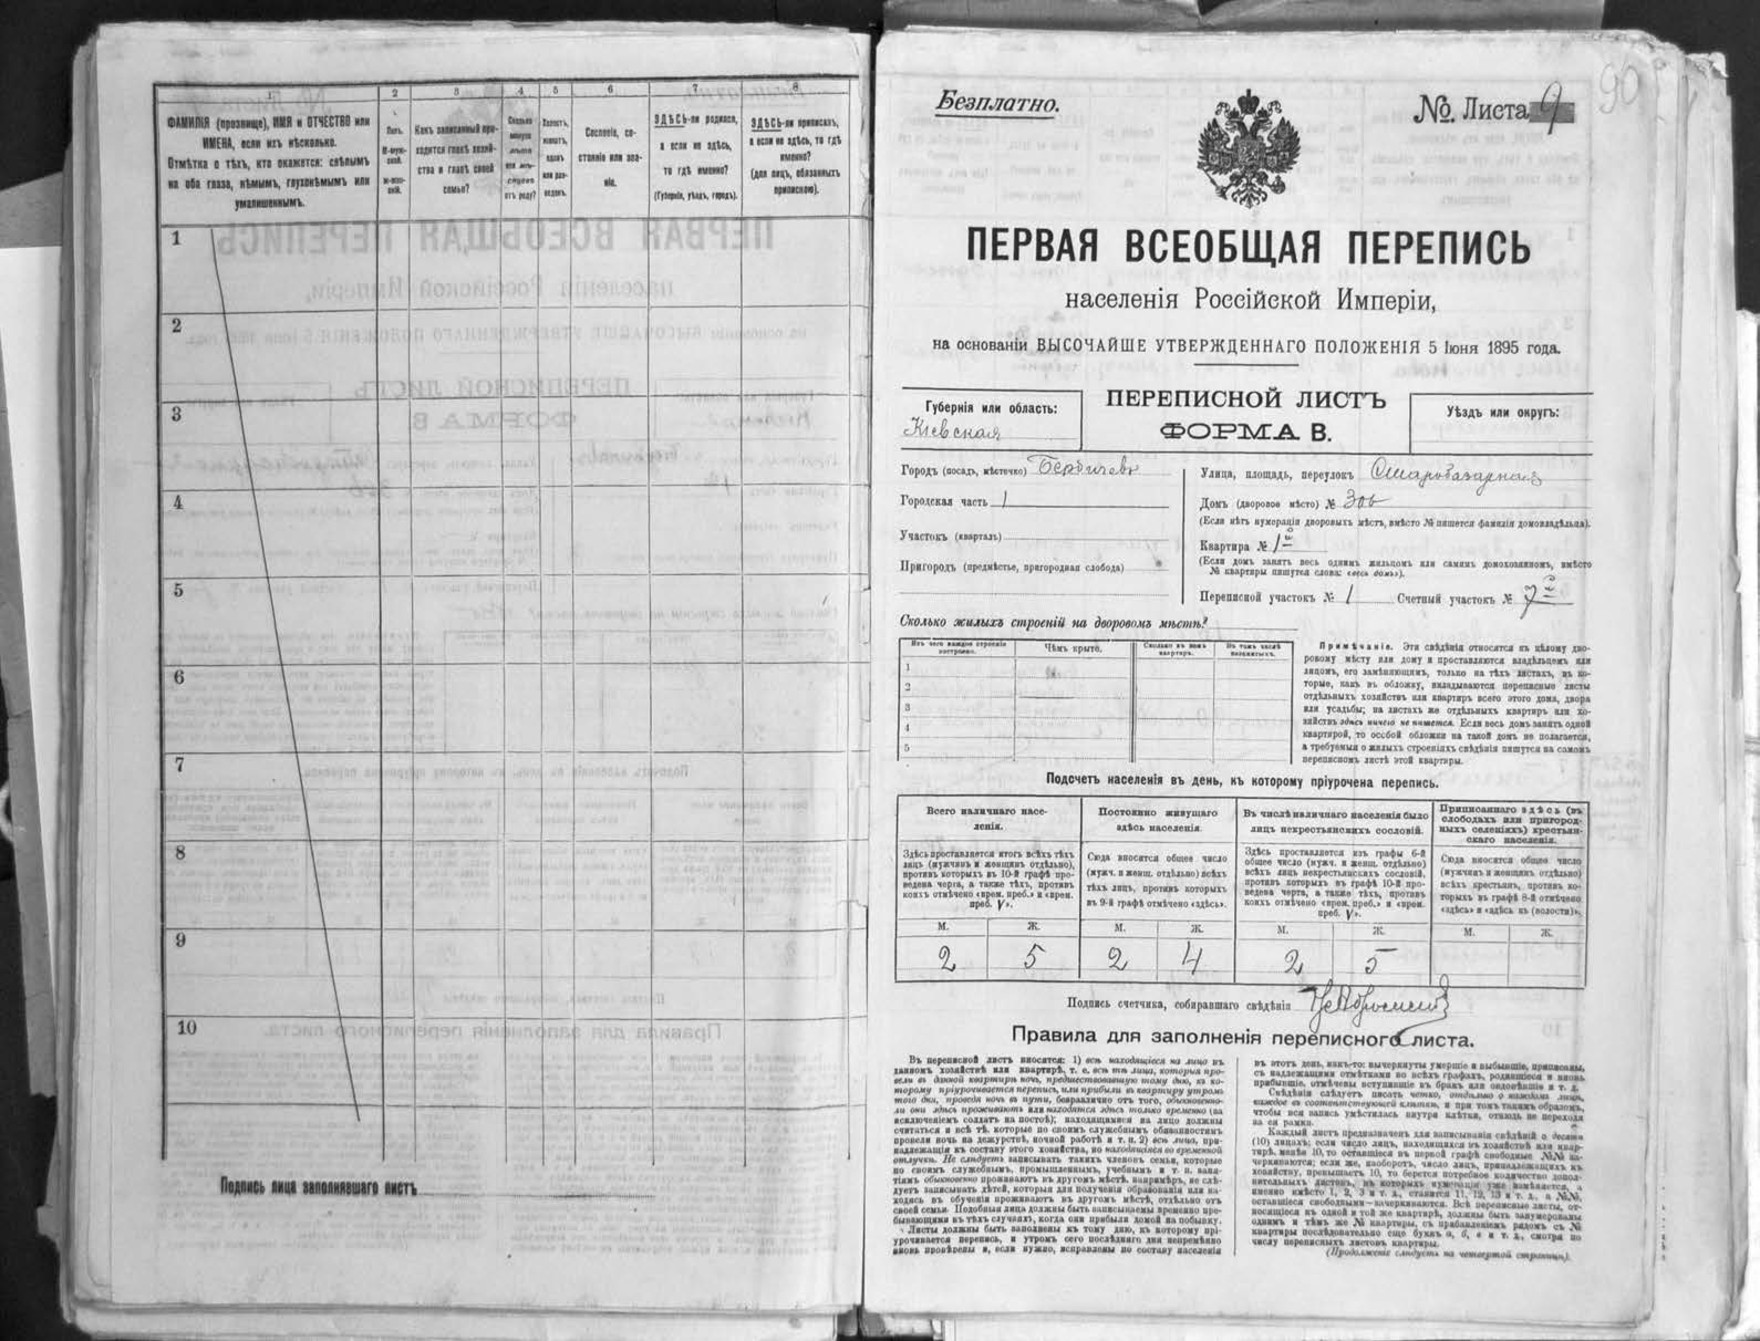 1
2
3
4
5
6
7
8
ФАМИЛІЯ (прозвище), ИМЯ и ОТЧЕСТВО или
ИМЕНА, если ихъ нѣсколько.
Отмѣтка о тѣхъ, кто окажется: слѣпымъ
на оба глаза, нѣмымъ, глухонѣмымъ или
умалишеннымъ.
Полъ.
М-муж-
ской.
Ж-жен-
скій.
Какъ записанный при-
ходится главѣ хозяй-
ства и главѣ своей
семьи?
Сколько
минуло
лѣтъ
или мѣ-
сяцевъ
отъ роду?
Холостъ,
женатъ,
вдовъ
или раз-
веденъ.
Сословіе, со-
стояніе или зва-
ніе.
ЗДѢСЬ-ли родился,
а если не здѣсь,
то гдѣ именно?
(Губернія, уѣздъ, городъ).
ЗДѢСЬ-ли приписанъ,
а если не здѣсь, то гдѣ
именно?
(для лицъ, обязанныхъ
припискою).
1
2
3
4
5
6
7
8
9
10
Подпись лица заполнявшаго листъ
90
Безплатно.
№. Листа 9
ПЕРВАЯ ВСЕОБЩАЯ ПЕРЕПИСЬ
населенія Россійской Имперіи,
на основаніи ВЫСОЧАЙШЕ УТВЕРЖДЕННАГО ПОЛОЖЕНІЯ 5 Іюня 1895 года.
ПЕРЕПИСНОЙ ЛИСТЪ
ФОРМА В.
Губернія или область:
Кіевская
Уѣздъ или округъ:
Городъ (посадъ, мѣстечко) Бердичевъ
Городская часть 1
Участокъ (кварталъ)
Пригородъ (предмѣстье, пригородная слобода)
Улица, площадь, переулокъ Старобазарная
Домъ (дворовое мѣсто) №
(Если нѣтъ нумераціи дворовыхъ мѣстъ, вмѣсто № пишется фамилія домовладѣльца).
Квартира № 1
(Если домъ занятъ весь однимъ жильцомъ или самимъ домохозяиномъ, вмѣсто
№ квартиры пишутся слова: «весь домъ»).
Переписной участокъ № 1 Счетный участокъ № 7
Сколько жилыхъ строеній на дворовомъ мѣстѣ?
Изъ чего каждое строеніе
построено.
Чѣмъ крыто.
Сколько въ немъ
квартиръ.
Въ томъ числѣ
незанятыхъ.
1
2
3
4
5
Примѣчаніе. Эти свѣдѣнія относятся къ цѣлому дво-
ровому мѣсту или дому и проставляются владѣльцемъ или
лицомъ, его замѣняющимъ, только на тѣхъ листахъ, въ ко-
торые, какъ въ обложку, вкладываются переписные листы
отдѣльныхъ хозяйствъ или квартиръ всего этого дома, двора
или усадьбы; на листахъ же отдѣльныхъ квартиръ или хо-
зяйствъ здѣсь ничего не пишется. Если весь домъ занятъ одной
квартирой, то особой обложки на такой домъ не полагается,
а требуемыя о жилыхъ строеніяхъ свѣдѣнія пишутся на самомъ
переписномъ листѣ этой квартиры.
Подсчетъ населенія въ день, къ которому пріурочена перепись.
Всего наличнаго насе-
ленія.
Здѣсь проставляется итогъ всѣхъ тѣхъ
лицъ (мужчинъ и женщинъ отдѣльно),
противъ которыхъ въ 10-й графѣ про-
ведена черта, а также тѣхъ, противъ
коихъ отмѣчено «врем. преб.» и «врем.
преб. V».
Постоянно живущаго
здѣсь населенія.
Сюда вносится общее число
(мужч. и женщ. отдѣльно) всѣхъ
тѣхъ лицъ, противъ которыхъ
въ 9-й графѣ отмѣчено «здѣсь».
Въ числѣ наличнаго населенія было
лицъ некрестьянскихъ сословій.
Здѣсь проставляется изъ графы 6-й
общее число (мужч. и женщ. отдѣльно)
всѣхъ лицъ некрестьянскихъ сословій,
противъ которыхъ въ графѣ 10-й про-
ведена черта, а также тѣхъ, противъ
коихъ отмѣчено «врем. преб.» и «врем.
преб. V».
Приписаннаго здѣсь (въ
слободахъ или пригород-
ныхъ селеніяхъ) крестьян-
скаго населенія.
Сюда вносится общее число
(мужчинъ и женщинъ отдѣльно)
всѣхъ крестьянъ, противъ ко-
торыхъ въ графѣ 8-й отмѣчено
«здѣсь» и «здѣсь къ (волости)».
М. Ж. М. Ж. М. Ж. М. Ж.
2 5 2 4 2 5
Подпись счетчика, собиравшаго свѣдѣнія
Правила для заполненія переписного листа.
Въ переписной листъ вносятся: 1) всѣ находящіеся на лицо въ
данномъ хозяйствѣ или квартирѣ, т. е. всѣ тѣ лица, которыя про-
вели въ данной квартирѣ ночь, предшествовавшую тому дню, къ ко-
торому пріурочивается перепись, или прибыли въ квартиру утромъ
того дня, проведя ночь въ пути, безразлично отъ того, обыкновенно-
ли они здѣсь проживаютъ или находятся здѣсь только временно (за
исключеніемъ солдатъ на постоѣ); находящимися на лицо должны
считаться и всѣ тѣ, которые по своимъ служебнымъ обязанностямъ
провели ночь на дежурствѣ, ночной работѣ и т. п. 2) всѣ лица, при-
надлежащія къ составу этого хозяйства, но находящіяся во временной
отлучкѣ. Не слѣдуетъ записывать такихъ членовъ семьи, которые
по своимъ служебнымъ, промышленнымъ, учебнымъ и т. п. заня-
тіямъ обыкновенно проживаютъ въ другомъ мѣстѣ, напримѣръ, не слѣ-
дуетъ записывать дѣтей, которыя для полученія образованія или на-
ходясь въ обученіи проживаютъ въ другомъ мѣстѣ, отдѣльно отъ
своей семьи. Подобныя лица должны быть записываемы временно пре-
бывающими въ тѣхъ случаяхъ, когда они прибыли домой на побывку.
Листы должны быть заполнены къ тому дню, къ которому прі-
урочивается перепись, и утромъ сего послѣдняго дня непремѣнно
вновь провѣрены и, если нужно, исправлены по составу населенія
въ этотъ день, какъ-то: вычеркнуты умершіе и выбывшіе, приписаны,
съ надлежащими отмѣтками во всѣхъ графахъ, родившіеся и вновь
прибывшіе, отмѣчены вступившіе въ бракъ или овдовѣвшіе и т. д.
Свѣдѣнія слѣдуетъ писать четко, отдѣльно о каждомъ лицѣ,
каждое въ соотвѣтствующей клѣткѣ, и при томъ такимъ образомъ,
чтобы вся запись умѣстилась внутри клѣтки, отнюдь не переходя
за ея рамки.
Каждый листъ предназначенъ для записыванія свѣдѣній о десяти
(10) лицахъ; если число лицъ, находящихся въ хозяйствѣ или квар-
тирѣ, менѣе 10, то оставшіеся въ первой графѣ свободные №№ за-
черкиваются; если же, наоборотъ, число лицъ, принадлежащихъ къ
хозяйству, превышаетъ 10, то берется потребное количество допол-
нительныхъ листовъ, въ которыхъ нумерація уже измѣняется, а
именно вмѣсто 1, 2, 3 и т. д., ставится 11, 12, 13 и т. д., а №№,
оставшіеся свободными—зачеркиваются. Всѣ переписные листы, от-
носящіеся къ одной и той же квартирѣ, должны быть занумерованы
однимъ и тѣмъ же № квартиры, съ прибавленіемъ рядомъ съ №
квартиры послѣдовательно еще буквъ а, б, в и т. д., смотря по
числу переписныхъ листовъ квартиры.
(Продолженіе слѣдуетъ на четвертой страницѣ).